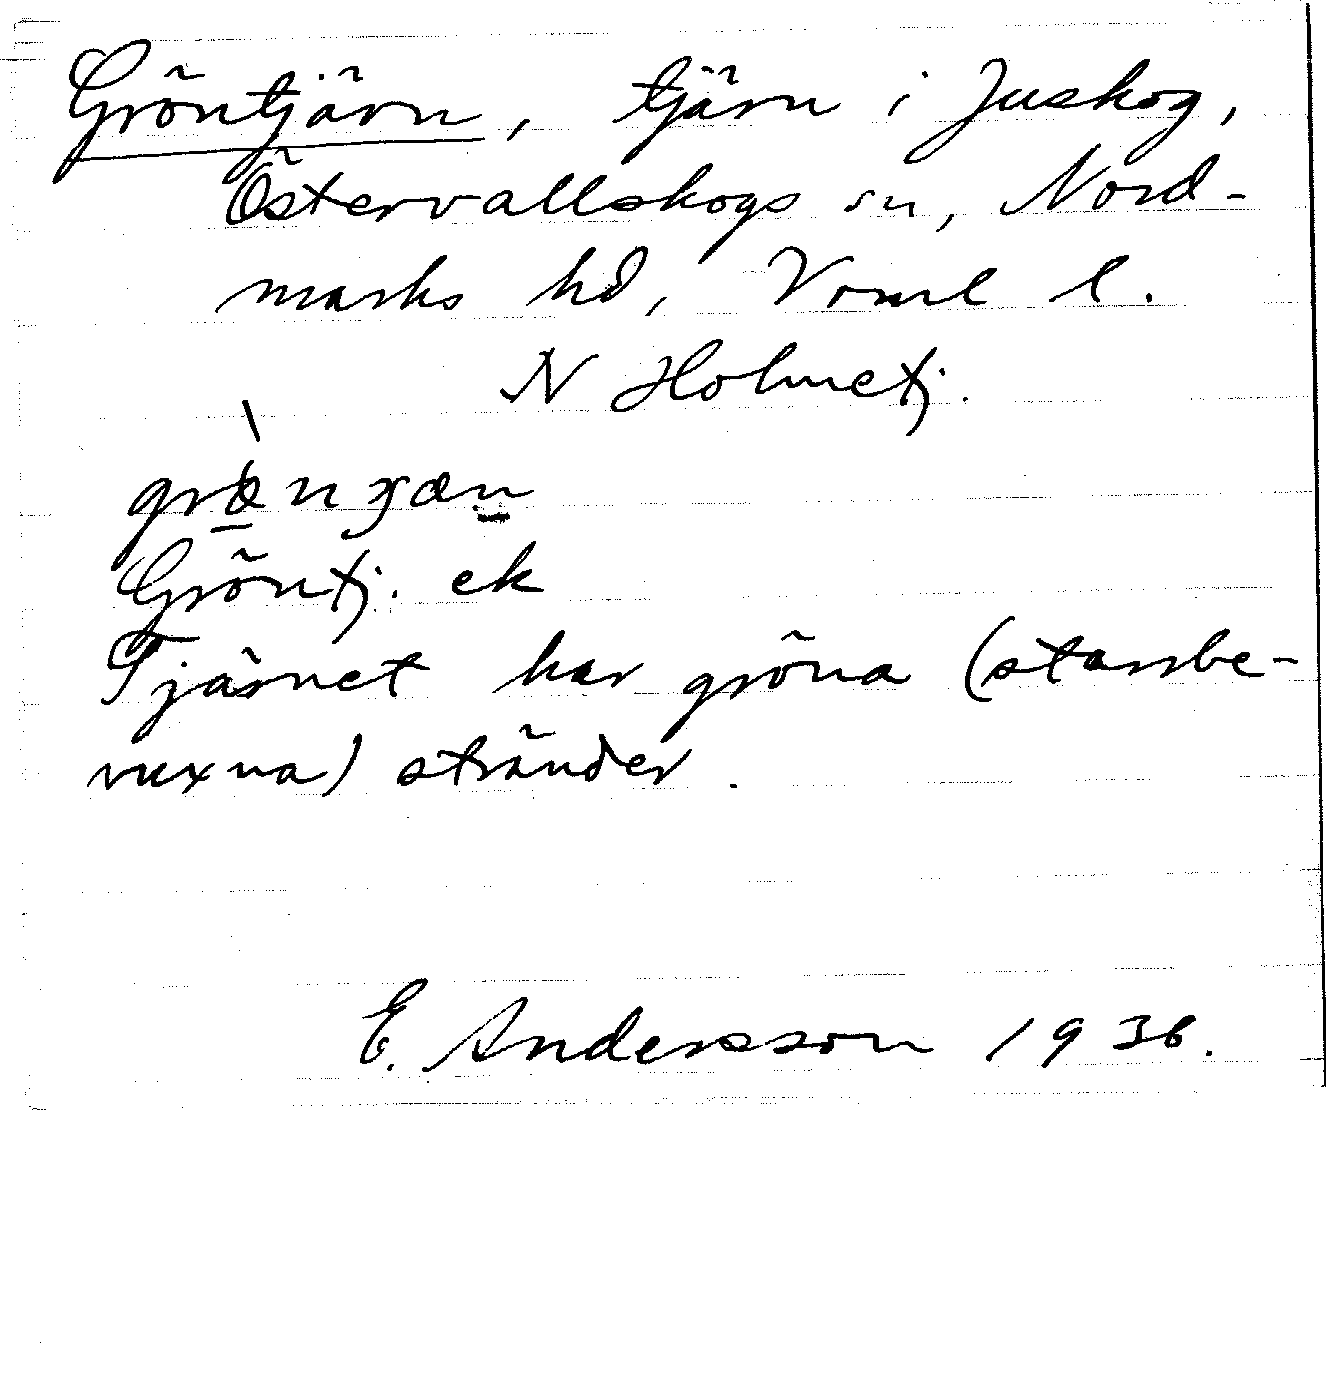 Gröntjärn, tjärn i Juskog,
Östervallskogs sn, Nord-
marks hd, Vrml l.
N Holmetj.
Gröntj. ek
Tjärnet har gröna (starrbe-
vuxna) stränder.
E. Andersson 1936.